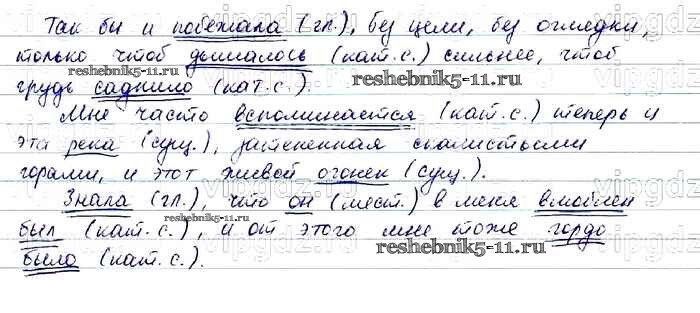 Так бы и побежала (гл.), без цели, без оглядки,
только чтоб дышалось (кат. с.) сильнее, чтоб
reshebnik5-11.ru
reshebnik5-11.ru
грудь саднило (кат. с.).
Мне часто вспоминается (кат. с.) теперь и
эта река (сущ.), затененная скалистыми
горами, и этот живой огонек (сущ.).
Знала (гл.), что он (мест.) в меня влюблен
reshebnik5-11.ru
был (кат. с.), и от этого мне тоже гордо
reshebnik5-11.ru
было (кат. с.).